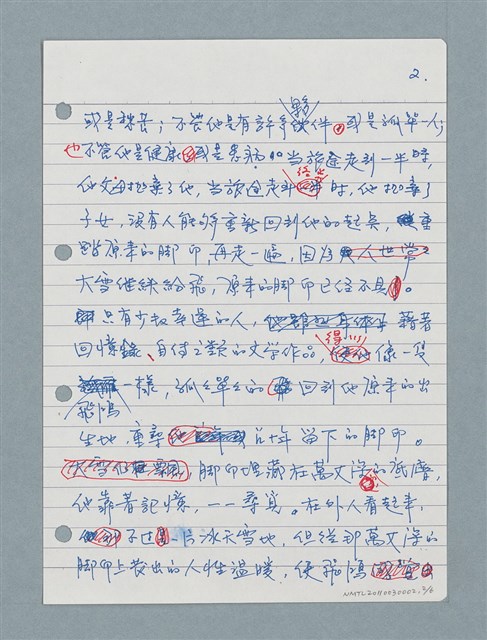 2.
夥
或是拱岳；不管他是有許多伙伴，或是孤單一人；
也不管他是健康或是患病。當旅途走到一半時，
結尾
他父母拋棄了他，當旅途走到時，他拋棄了
子女，沒有人能夠重新回到他的起點，重
踏原來的腳印，再走一遍，因為人世常
大雪继续紛飛，原來的腳印已经不見。
只有少数幸運的人，藉著
得以
回憶錄、自传之類的文学作品，像一隻
飛鴻
一樣，孤孤單單的回到他原來的出
生地，重尋當年留下的腳印。
腳印埋藏在萬丈深的底層，
他靠著記憶，一一尋覓。在外人看起來，
不过是一片冰天雪地，但從那萬丈深的
腳印上散出的人性溫暖，使飛鴻
NMTL20110030002